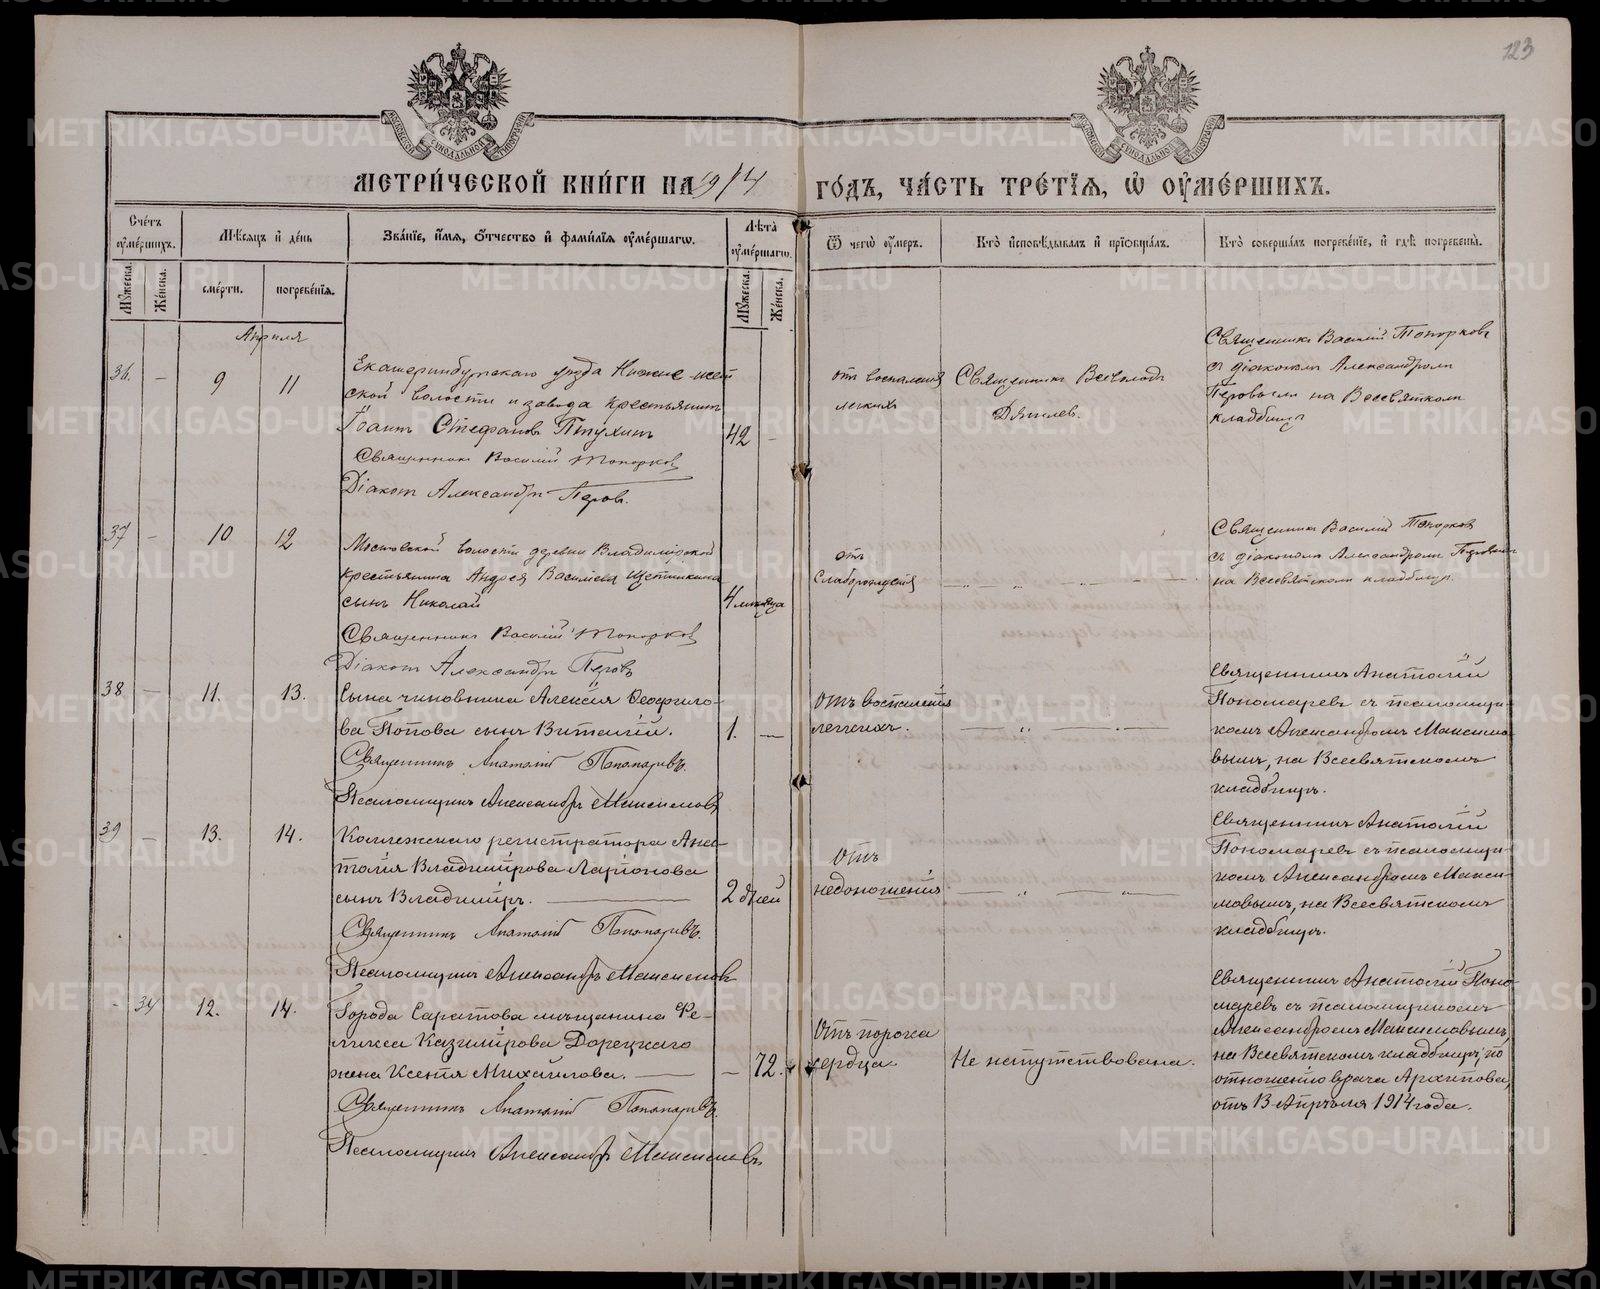 123
МЕТРИ́ЧЕСКОЙ КНИ́ГИ НА 1914 ГО́ДЪ, ЧА́СТЬ ТРЕ́ТІѦ, Ѡ҆ ОУ҆МЕ́РШИХЪ.
Сче́тъ оу҆ме́ршихъ.
Мꙋ́жеска.
Же́нска.
Мѣ́сѧцъ и҆ де́нь
сме́рти.
погребе́нїѧ.
Зва́нїе, и҆́мѧ, ѻ҆́тчество и҆ фами́лїѧ оу҆ме́ршагѡ.
Лѣ́та оу҆ме́ршагѡ.
Мꙋ́жеска.
Же́нска.
Ѿ чегѡ̀ оу҆́меръ.
Кто̀ и҆сповѣ́дывалъ и҆ прїѡбща́лъ.
Кто̀ соверша́лъ погребе́нїе, и҆ гдѣ̀ погребены̀.
Апрѣля
36. — 9 11
Екатеринбургскаго уѣзда Нижне-исет
ской волости и завода крестьянинъ
Іоаннъ Стефановъ Пѣтухинъ
42 —
Священникъ Василій Топорковъ
Діаконъ Александръ Перовъ.
отъ воспаленія
легкихъ
Священникъ Всеволодъ
Дягилев.
Священникъ Василій Топорковъ
съ діакономъ Александромъ
Перовымъ на Всесвятскомъ
кладбищѣ
37 — 10 12
волости деревни Владимірской
крестьянина Андрея Васильева Щетникина
сынъ Николай
4 мѣсяца
Священникъ Василій Топорковъ
Діаконъ Александръ Перовъ
отъ
слаборожденія
— „ — „ —
Священникъ Василій Топорковъ
съ діакономъ Александромъ Перовымъ
на Всесвятскомъ кладбищѣ.
38 — 11. 13.
Сына чиновника Алексія Ѳеофило-
ва Попова сынъ Виталій.
1. —
Священникъ Анатолій Пономаревъ.
Псаломщикъ Александръ Максимовъ
Отъ воспаленія
легкихъ.
— „ — . —
Священникъ Анатолій
Пономаревъ съ псаломщи-
комъ Александромъ Максимо
вымъ, на Всесвятскомъ
кладбищѣ.
39 — 13. 14.
Коллежскаго регистратора Ана-
толія Владимірова Ларіонова
сынъ Владиміръ. —
2 дней
Священникъ Анатолій Пономаревъ.
Псаломщикъ Александръ Максимовъ
Отъ
недоношенія
— „ — „ —
Священникъ Анатолій
Пономаревъ съ псаломщи-
комъ Александромъ Макси-
мовымъ, на Всесвятскомъ
кладбищѣ.
- 34 12. 14.
Города Саратова мѣщанина Фе-
ликса Казимірова Дорецкаго
жена Ксенія Михайлова. —
— 72.
Священникъ Анатолій Пономаревъ.
Псаломщикъ Александръ Максимовъ
Отъ порока
сердца.
Не напутствована.
Священникъ Анатолій Поно-
маревъ съ псаломщикомъ
Александромъ Максимовымъ,
на Всесвятскомъ кладбищѣ, по
отношенію врача Архипова,
отъ 13 Апрѣля 1914 года.
METRIKI.GASO-URAL.RU